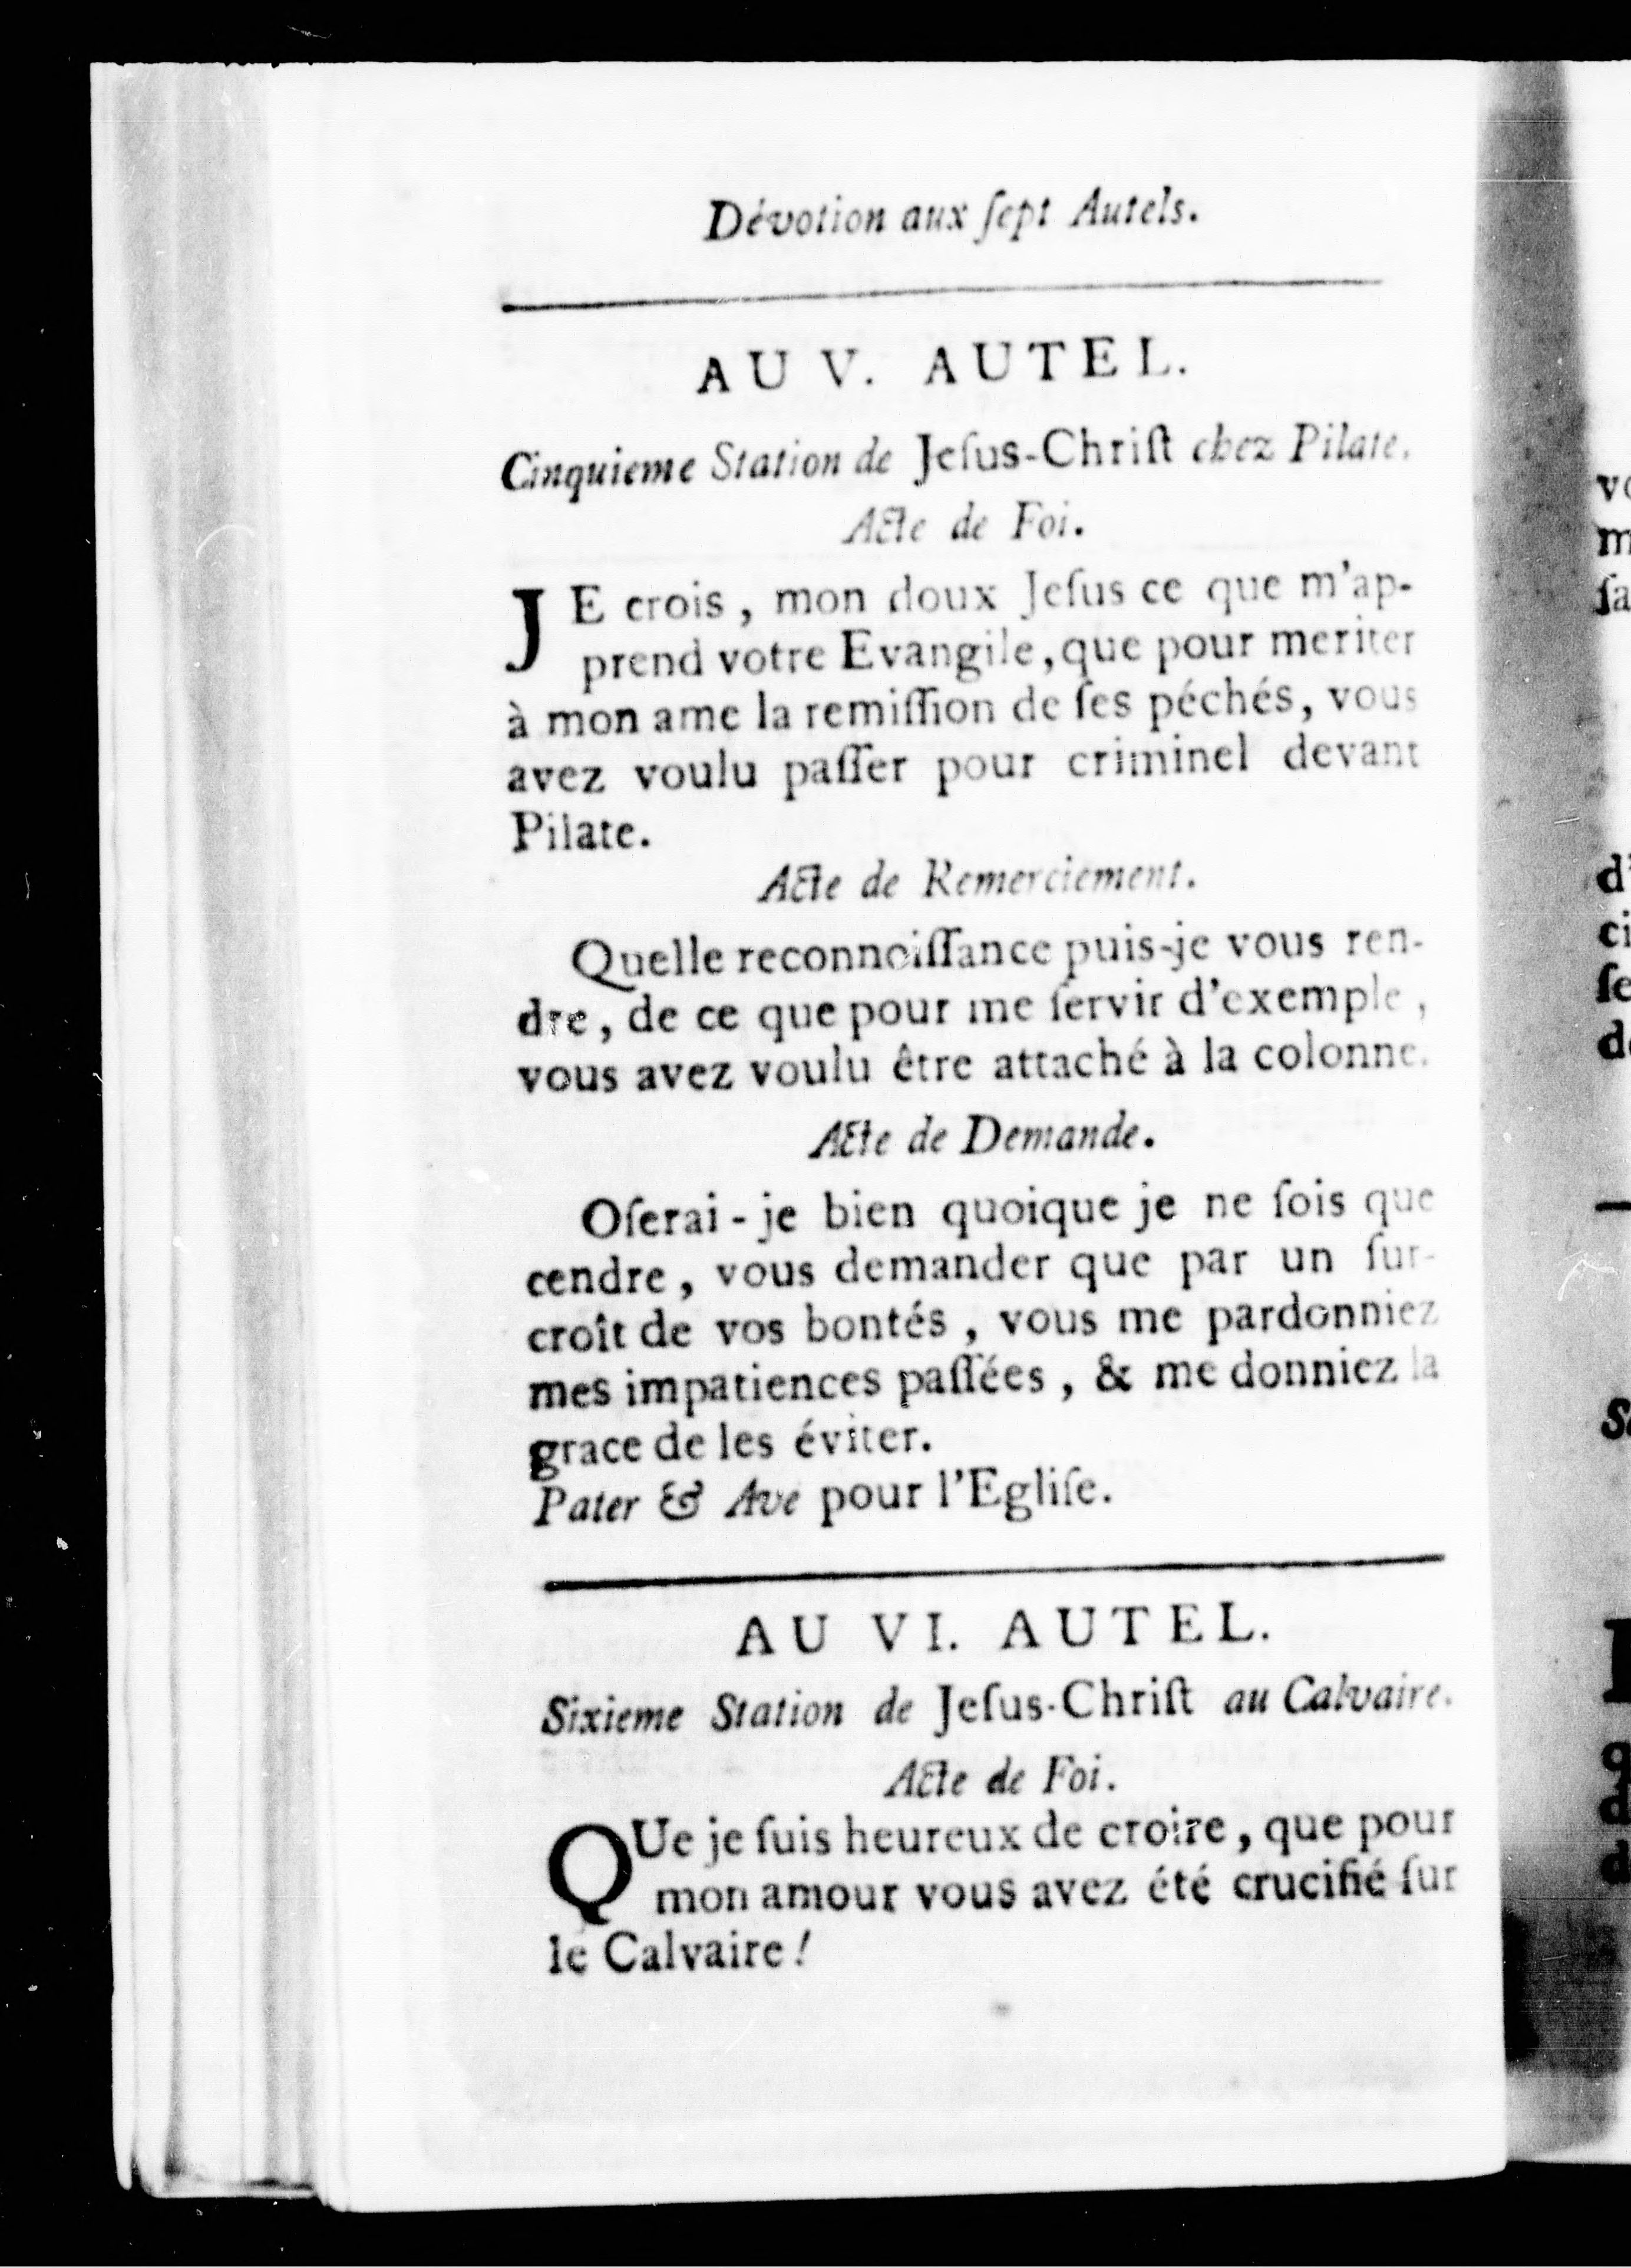 Dévotion aux ſept Autels.
AU V. AUTEL.
Cinquieme Station de Jeſus-Chriſt chez Pilate.
Acte de Foi.
JE crois, mon doux Jeſus ce que m'ap-
prend votre Evangile, que pour meriter
à mon ame la remiſſion de ſes péchés, vous
avez voulu paſſer pour criminel devant
Pilate.
Acte de Remerciement.
Quelle reconnoiſſance puis-je vous ren-
dre, de ce que pour me ſervir d'exemple,
vous avez voulu être attaché à la colonne.
Acte de Demande.
Oſerai-je bien quoique je ne ſois que
cendre, vous demander que par un ſur-
croît de vos bontés, vous me pardonniez
mes impatiences paſſées, & me donniez la
grace de les éviter.
Pater & Ave pour l'Egliſe.
AU VI. AUTEL.
Sixieme Station de Jeſus-Chriſt au Calvaire.
Acte de Foi.
QUe je ſuis heureux de croire, que pour
mon amour vous avez été crucifié ſur
le Calvaire!